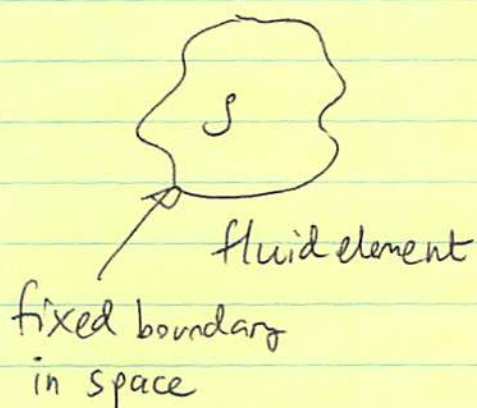 ρ
fluid element
fixed boundary
in space